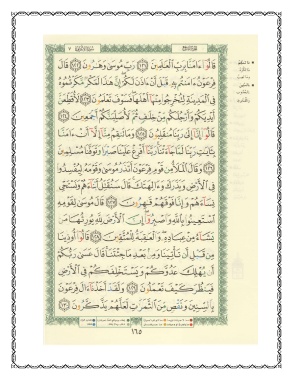 قَالُوٓا۟ ءَامَنَّا بِرَبِّ ٱلْعَٰلَمِينَ ١٢١ رَبِّ مُوسَىٰ وَهَٰرُونَ ١٢٢ قَالَ
فِرْعَوْنُ ءَامَنتُم بِهِۦ قَبْلَ أَنْ ءَاذَنَ لَكُمْ إِنَّ هَٰذَا لَمَكْرٌ مَّكَرْتُمُوهُ
فِى ٱلْمَدِينَةِ لِتُخْرِجُوا۟ مِنْهَآ أَهْلَهَا فَسَوْفَ تَعْلَمُونَ ١٢٣ لَأُقَطِّعَنَّ
أَيْدِيَكُمْ وَأَرْجُلَكُم مِّنْ خِلَٰفٍ ثُمَّ لَأُصَلِّبَنَّكُمْ أَجْمَعِينَ ١٢٤
قَالُوٓا۟ إِنَّآ إِلَىٰ رَبِّنَا مُنقَلِبُونَ ١٢٥ وَمَا تَنقِمُ مِنَّآ إِلَّآ أَنْ ءَامَنَّا
بِـَٔايَٰتِ رَبِّنَا لَمَّا جَآءَتْنَا رَبَّنَآ أَفْرِغْ عَلَيْنَا صَبْرًا وَتَوَفَّنَا مُسْلِمِينَ
١٢٦ وَقَالَ ٱلْمَلَأُ مِن قَوْمِ فِرْعَوْنَ أَتَذَرُ مُوسَىٰ وَقَوْمَهُۥ لِيُفْسِدُوا۟
فِى ٱلْأَرْضِ وَيَذَرَكَ وَءَالِهَتَكَ قَالَ سَنُقَتِّلُ أَبْنَآءَهُمْ وَنَسْتَحْىِۦ
نِسَآءَهُمْ وَإِنَّا فَوْقَهُمْ قَٰهِرُونَ ١٢٧ قَالَ مُوسَىٰ لِقَوْمِهِ
ٱسْتَعِينُوا۟ بِٱللَّهِ وَٱصْبِرُوٓا۟ إِنَّ ٱلْأَرْضَ لِلَّهِ يُورِثُهَا مَن
يَشَآءُ مِنْ عِبَادِهِۦ وَٱلْعَٰقِبَةُ لِلْمُتَّقِينَ ١٢٨ قَالُوٓا۟ أُوذِينَا
مِن قَبْلِ أَن تَأْتِيَنَا وَمِنۢ بَعْدِ مَا جِئْتَنَا قَالَ عَسَىٰ رَبُّكُمْ
أَن يُهْلِكَ عَدُوَّكُمْ وَيَسْتَخْلِفَكُمْ فِى ٱلْأَرْضِ
فَيَنظُرَ كَيْفَ تَعْمَلُونَ ١٢٩ وَلَقَدْ أَخَذْنَآ ءَالَ فِرْعَوْنَ
بِٱلسِّنِينَ وَنَقْصٍ مِّنَ ٱلثَّمَرَٰتِ لَعَلَّهُمْ يَذَّكَّرُونَ ١٣٠
١٦٥